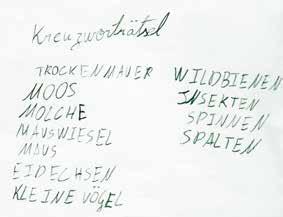 Kreuzworträtsel
TROCKENMAUER
MOOS
MOLCHE
MAUSWIESEL
MAUS
EIDECHSEN
KLEINE VÖGEL
WILDBIENEN
INSEKTEN
SPINNEN
SPALTEN